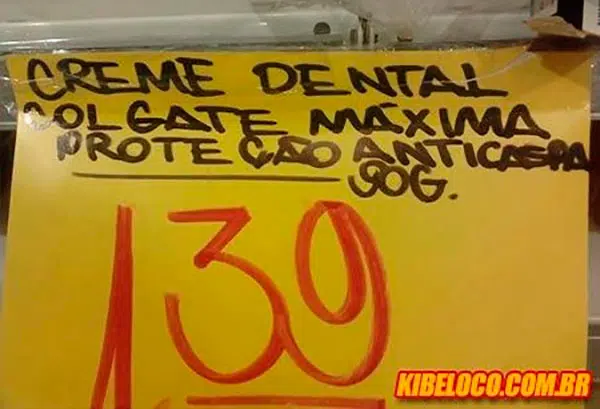 CREME DENTAL
COLGATE MÁXIMA
PROTEÇÃO ANTICAERA
90G.
1,39
KIBELOCO.COM.BR